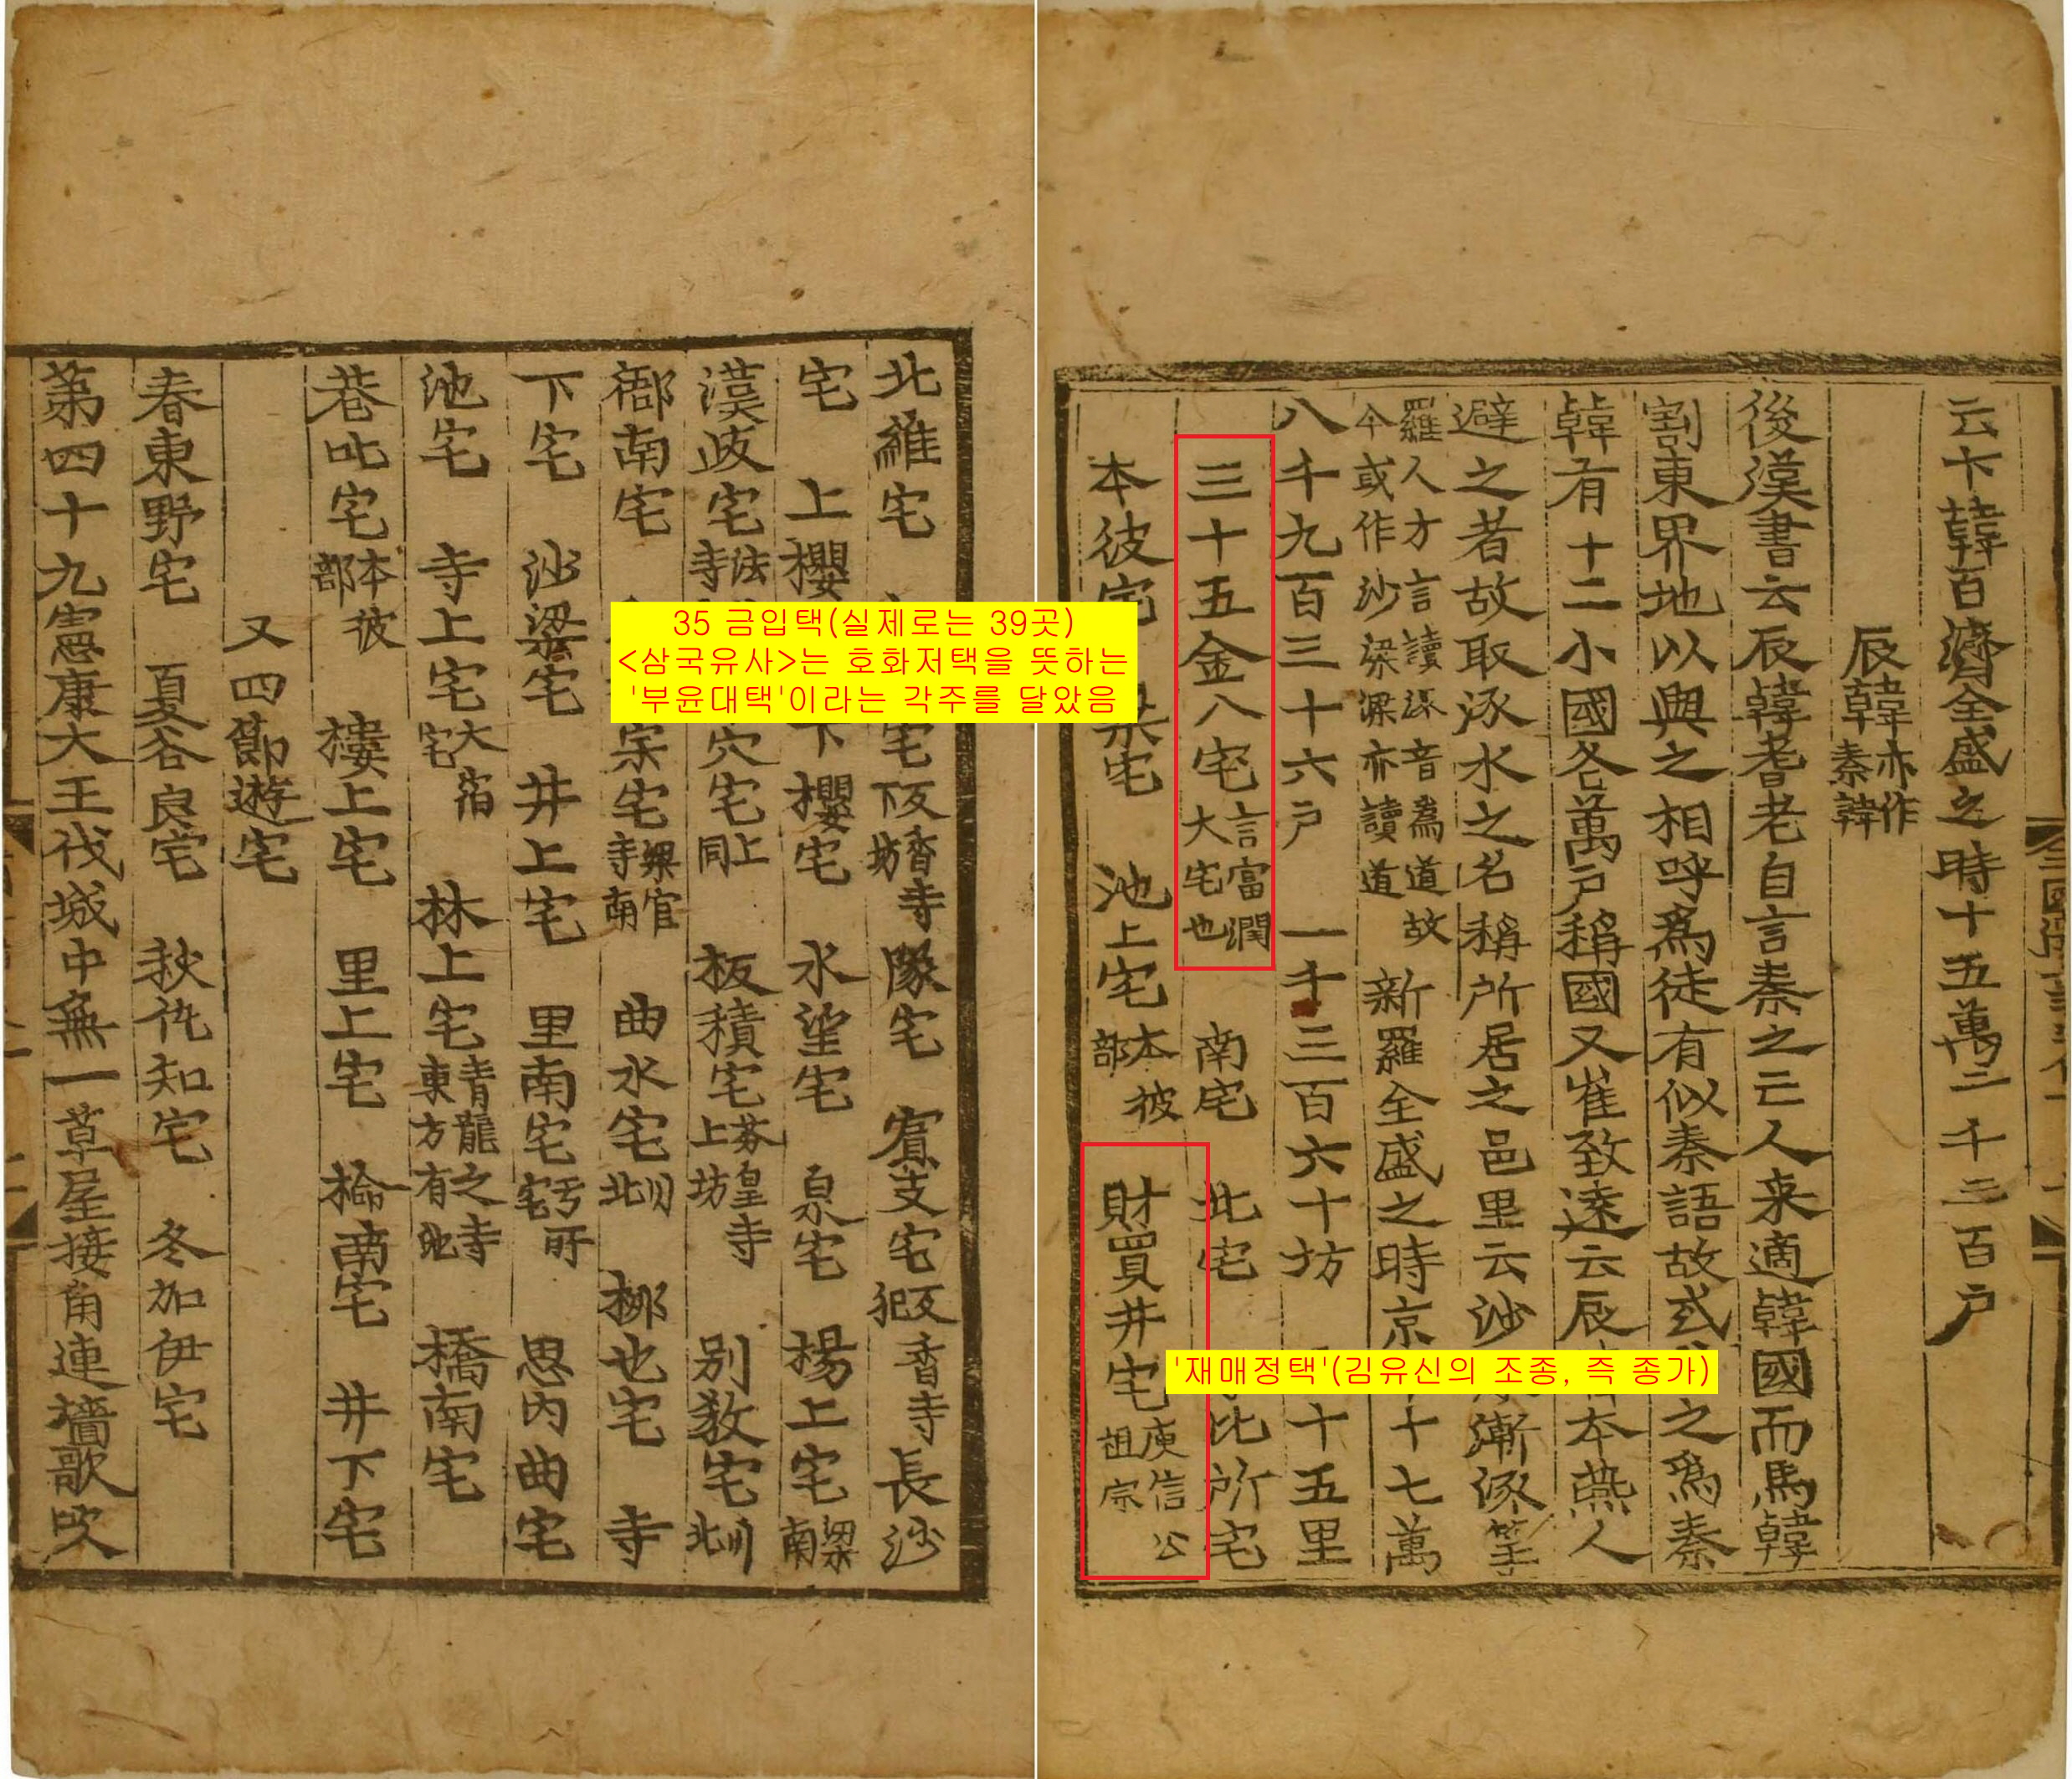 云卞韓百濟全盛之時十五萬二千三百戶
辰韓 亦作秦韓
後漢書云辰韓耆老自言秦之亡人来適韓國而馬韓
割東界地以與之相呼爲徒有似秦語故或之爲秦
韓有十二小國各萬戶稱國又崔致遠云辰本燕人
避之者故取涿水之名稱所居之邑里云沙漸涿等
羅人方言讀涿音爲道故今或作沙梁梁亦讀道 新羅全盛之時京十七萬
八千九百三十六戶 一千三百六十坊 十五里
三十五金入宅 言富潤大宅也 南宅 北宅 比所宅
本彼宅 梁宅 池上宅 本彼部 財買井宅 庾信公祖宗
北維宅 宅 反香寺下坊 隊宅 賓支宅 反香寺北 長沙
宅 上櫻 下櫻宅 水望宅 泉宅 楊上宅 梁南
漢岐宅 法寺 穴宅 上同 板積宅 芬皇寺上坊 別敎宅 川北
衙南宅 宗宅 梁官寺南 曲水宅 川北 柳也宅 寺
下宅 沙梁宅 井上宅 里南宅 亏所宅 思內曲宅
池宅 寺上宅 大宿宅 林上宅 青龍之寺東方有池 橋南宅
巷叱宅 本彼部 樓上宅 里上宅 椧南宅 井下宅
又四節遊宅
春東野宅 夏谷良宅 秋仇知宅 冬加伊宅
第四十九憲康大王代城中無一草屋接角連墻歌吹
35 금입택(실제로는 39곳)
<삼국유사>는 호화저택을 뜻하는
'부윤대택'이라는 각주를 달았음
'재매정택'(김유신의 조종, 즉 종가)